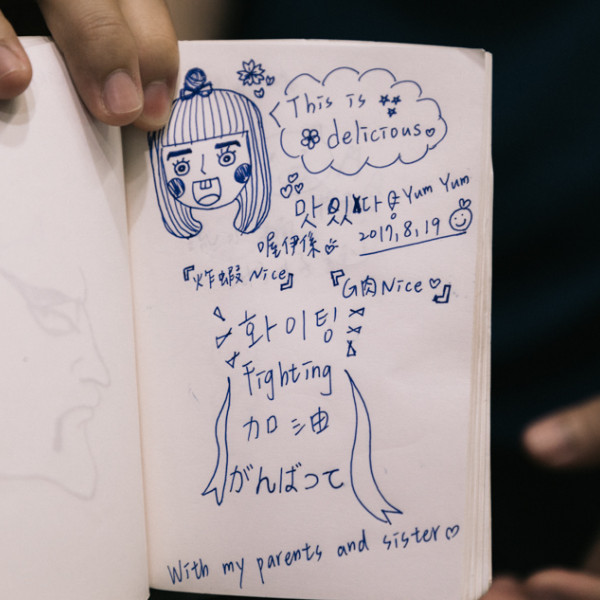 This is
delicious
맛있다 Yum Yum
喔伊係
2017,8,19
『炸蝦Nice』
『G肉Nice』
화이팅
Fighting
加油
がんばって
With my parents and sister